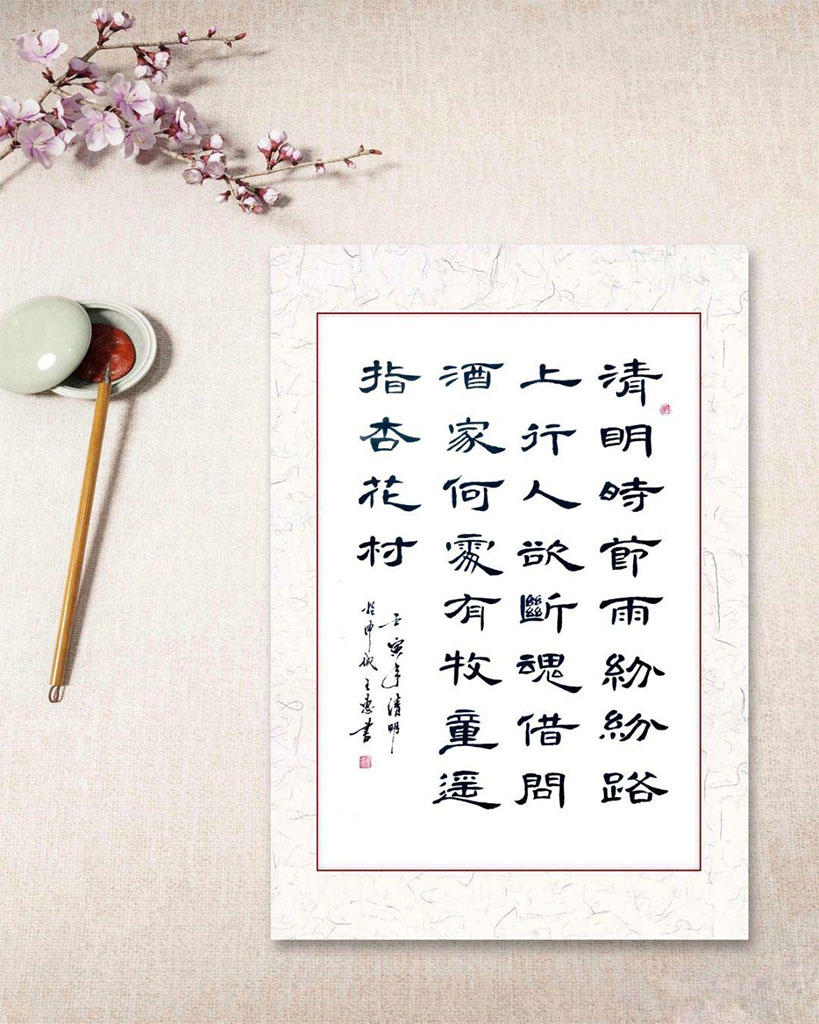 清明時節雨紛紛路
上行人欲斷魂借問
酒家何處有牧童遥
指杏花村
壬寅年清明
於申城王惠書